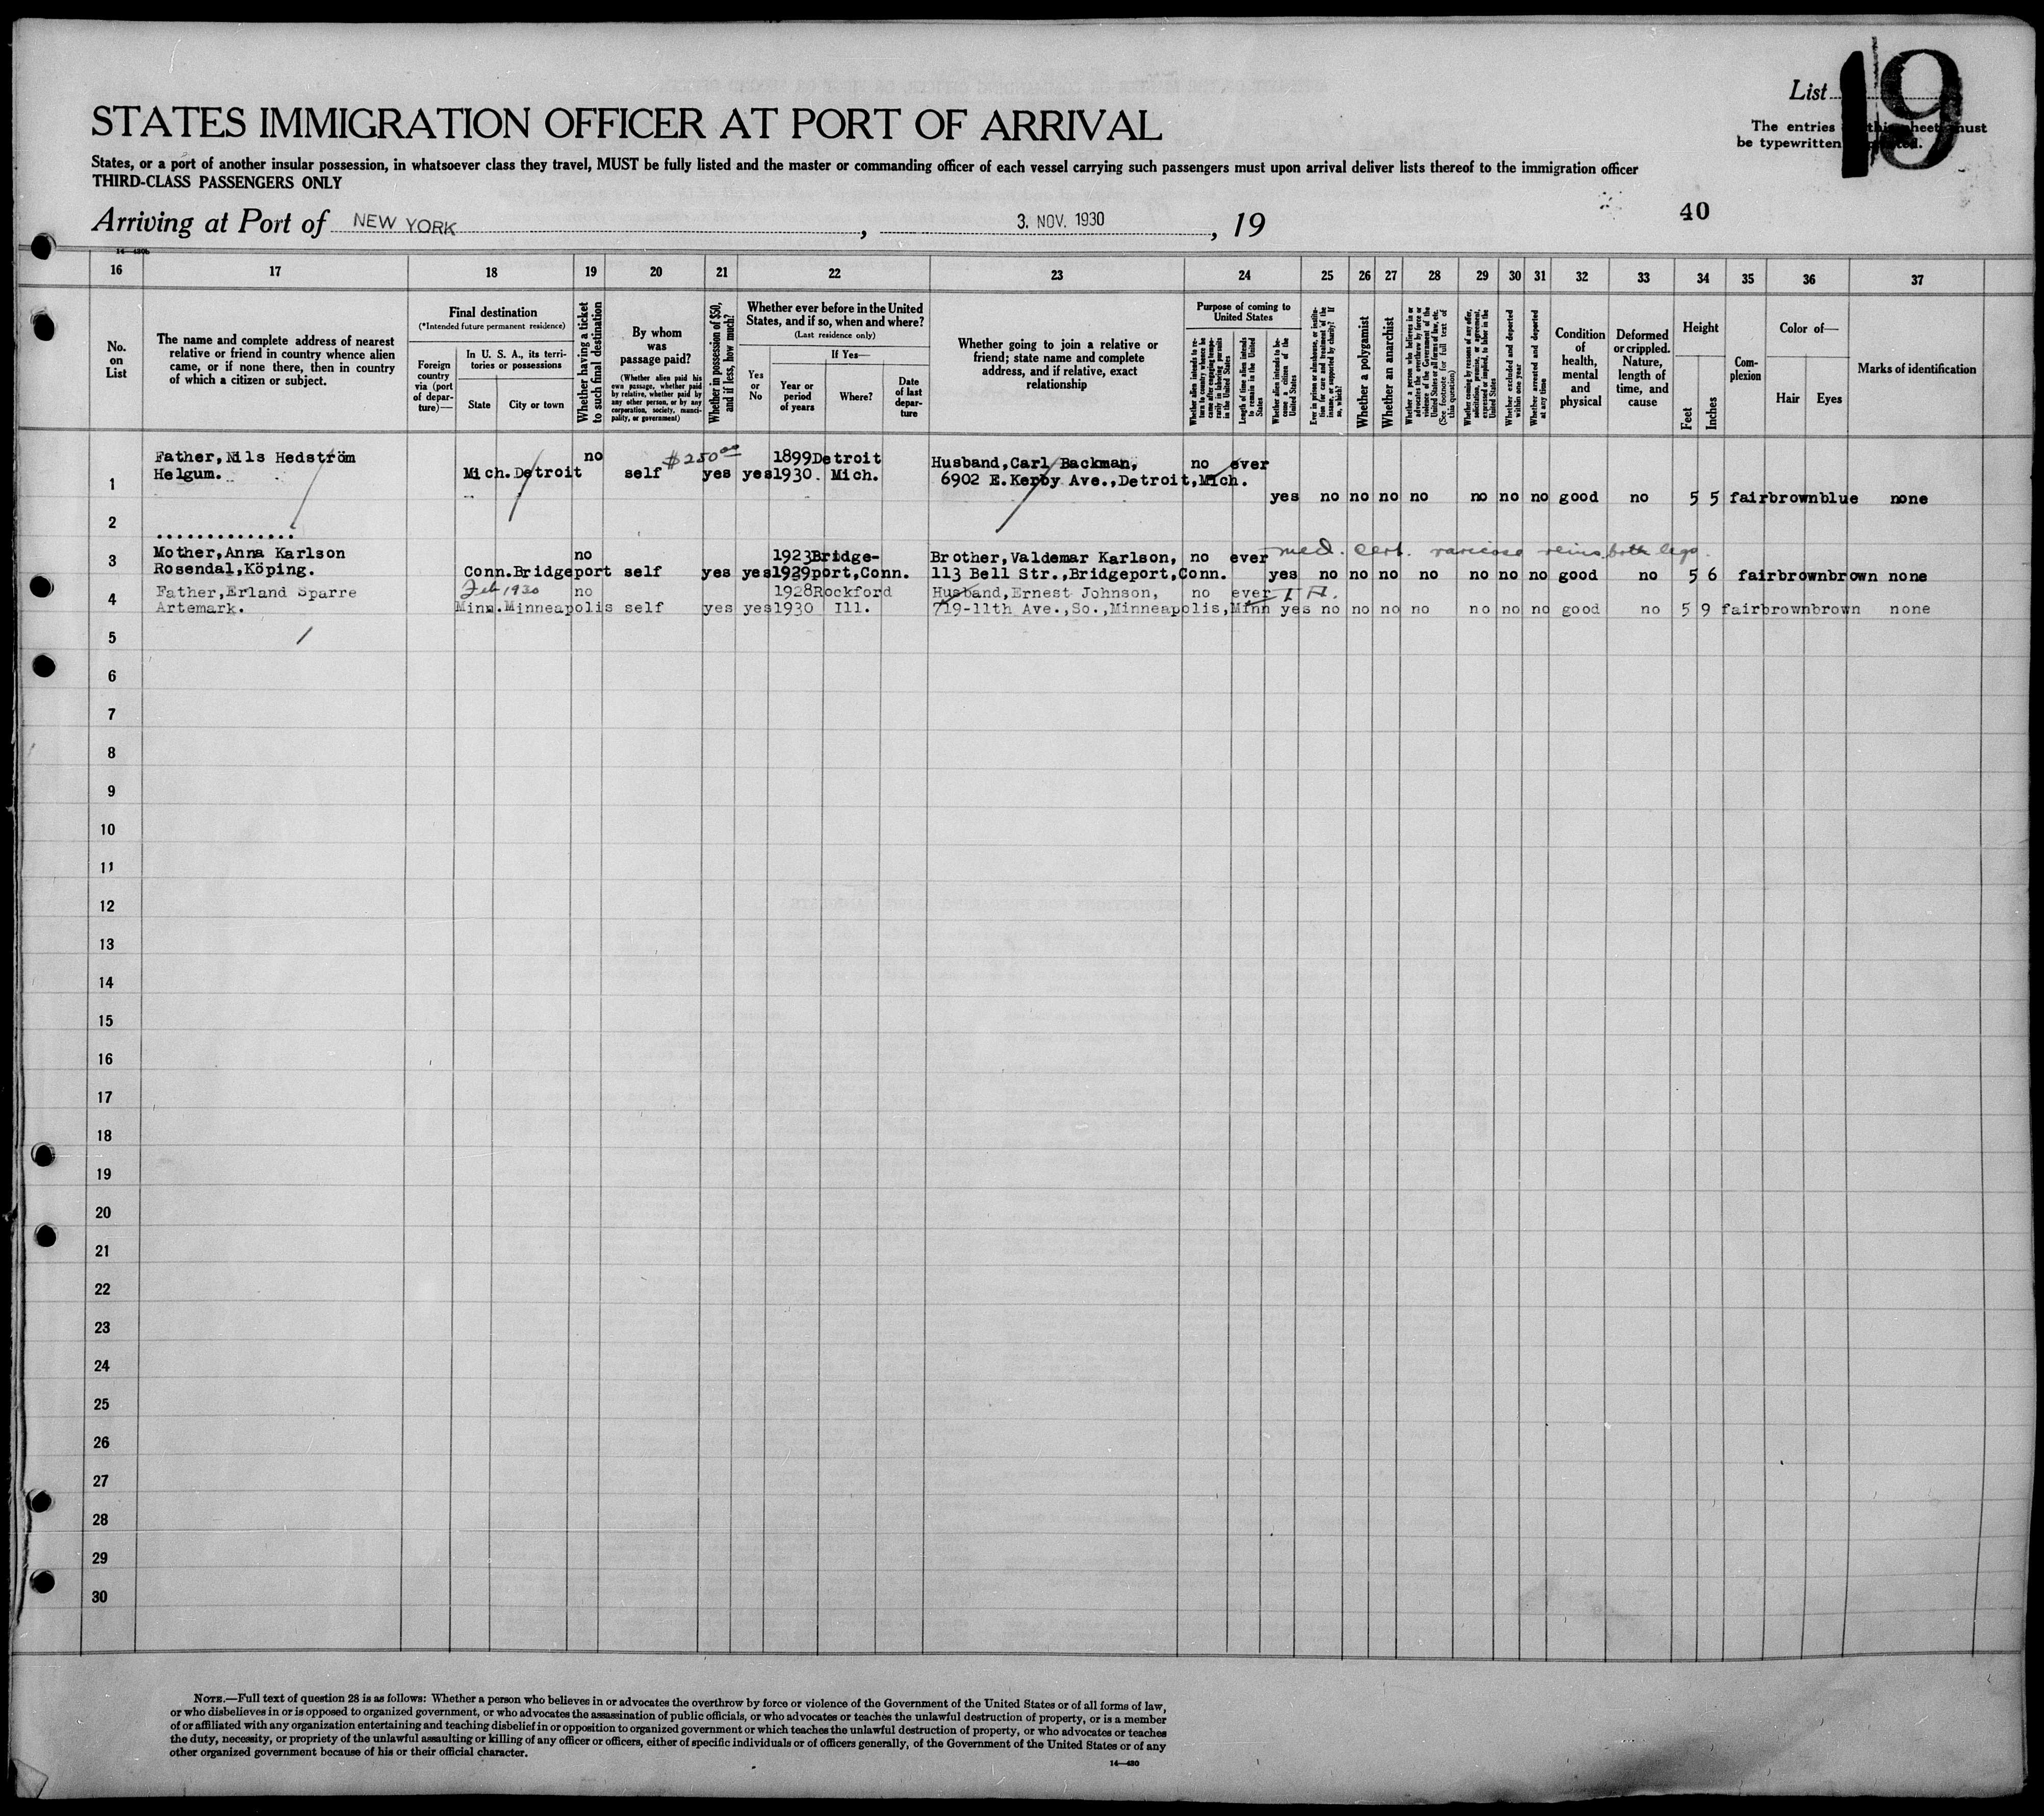 List 19
STATES IMMIGRATION OFFICER AT PORT OF ARRIVAL
The entries this sheet must
be typewritten
States, or a port of another insular possession, in whatsoever class they travel, MUST be fully listed and the master or commanding officer of each vessel carrying such passengers must upon arrival deliver lists thereof to the immigration officer
THIRD-CLASS PASSENGERS ONLY
40
Arriving at Port of NEW YORK, 3. NOV. 1930, 19
14—430b
16 17 18 19 20 21 22 23 24 25 26 27 28 29 30 31 32 33 34 35 36 37
No. on List
The name and complete address of nearest
relative or friend in country whence alien
came, or if none there, then in country
of which a citizen or subject.
Final destination
(*Intended future permanent residence)
Foreign country via (port of departure)—
In U. S. A., its territories or possessions
State City or town
Whether having a ticket to such final destination
By whom was passage paid?
(Whether alien paid his own passage, whether paid by relative, whether paid by any other person, or by any corporation, society, municipality, or government)
Whether in possession of $50, and if less, how much?
Whether ever before in the United
States, and if so, when and where?
(Last residence only)
Yes or No
If Yes—
Year or period of years
Where?
Date of last departure
Whether going to join a relative or
friend; state name and complete
address, and if relative, exact
relationship
Purpose of coming to United States
Whether alien intends to return to country whence he came after engaging temporarily in laboring pursuits in the United States
Length of time alien intends to remain in the United States
Whether alien intends to become a citizen of the United States
Ever in prison or almshouse, or institution for care and treatment of the insane, or supported by charity? If so, which?
Whether a polygamist
Whether an anarchist
Whether a person who believes in or advocates the overthrow by force or violence of the Government of the United States or all forms of law, etc. (See footnote for full text of this question)
Whether coming by reasons of any offer, solicitation, promise, or agreement, expressed or implied, to labor in the United States
Whether excluded and deported within one year
Whether arrested and deported at any time
Condition of health, mental and physical
Deformed or crippled. Nature, length of time, and cause
Height
Feet Inches
Complexion
Color of—
Hair Eyes
Marks of identification
Father, Nils Hedström no $250 00 1899 Detroit Husband, Carl Backman, no ever
Helgum. Mich. Detroit self yes yes 1930. Mich. 6902 E. Kerby Ave., Detroit, Mich.
1 yes no no no no no no no good no 5 5 fair brown blue none
2
..............
3 Mother, Anna Karlson no 1923 Bridge- Brother, Valdemar Karlson, no ever med. cert. varicose veins both legs.
Rosendal, Köping. Conn. Bridgeport self yes yes 1929 port, Conn. 113 Bell Str., Bridgeport, Conn. yes no no no no no no no good no 5 6 fair brown brown none
4 Father, Erland Sparre Feb 1930 no 1928 Rockford Husband, Ernest Johnson, no ever
Artemark. Minn. Minneapolis self yes yes 1930 Ill. 719-11th Ave., So., Minneapolis, Minn yes no no no no no no no good no 5 9 fair brown brown none
5
6
7
8
9
10
11
12
13
14
15
16
17
18
19
20
21
22
23
24
25
26
27
28
29
30
NOTE.—Full text of question 28 is as follows: Whether a person who believes in or advocates the overthrow by force or violence of the Government of the United States or of all forms of law,
or who disbelieves in or is opposed to organized government, or who advocates the assassination of public officials, or who advocates or teaches the unlawful destruction of property, or is a member
of or affiliated with any organization entertaining and teaching disbelief in or opposition to organized government or which teaches the unlawful destruction of property, or who advocates or teaches
the duty, necessity, or propriety of the unlawful assaulting or killing of any officer or officers, either of specific individuals or of officers generally, of the Government of the United States or of any
other organized government because of his or their official character.
14—430